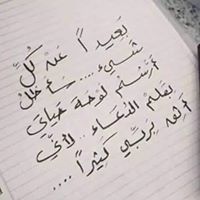 بَعيداً عَنْ كُلِّ
شَيْء .... سَأظلُّ
أرْسُم لَوْحَة حَياتي
بِقَلَمْ الدُّعَاء .. لأنّي
أثِق بِرَبِّي كَثِيراً ....